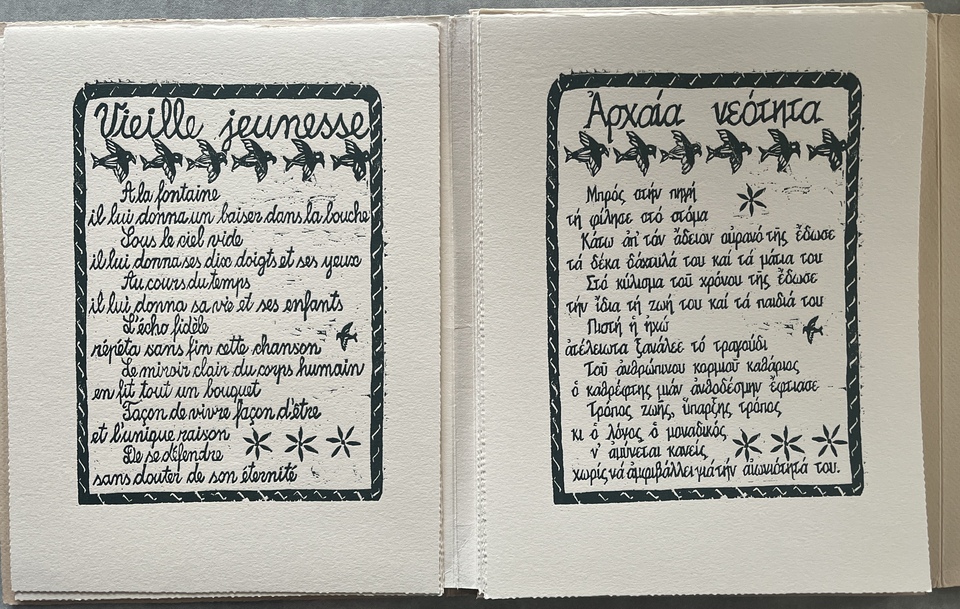 Vieille jeunesse
A la fontaine
il lui donna un baiser dans la bouche
Sous le ciel vide
il lui donna ses dix doigts et ses yeux
Au cours du temps
il lui donna sa vie et ses enfants
L'écho fidèle
répéta sans fin cette chanson
Le miroir clair du corps humain
en fit tout un bouquet
Façon de vivre façon d'être
et l'unique raison
De se défendre
sans douter de son éternité
Ἀρχαία νεότητα
Μπρός στήν πηγή
τή φίλησε στό στόμα
Κάτω ἀπ' τόν ἄδειον οὐρανό τῆς ἔδωσε
τά δέκα δάχτυλά του καί τά μάτια του
Στό κύλισμα τοῦ χρόνου τῆς ἔδωσε
τήν ἴδια τή ζωή του καί τά παιδιά του
Πιστή ἡ ἠχώ
ἀτέλειωτα ξανάλεε τό τραγούδι
Τοῦ ἀνθρώπινου κορμιοῦ καθάριος
ὁ καθρέφτης μιάν ἀνθοδέσμην ἔφτιασε
Τρόπος ζωῆς, ὕπαρξης τρόπος
κι ὁ λόγος ὁ μοναδικός
ν' ἀμύνεται κανείς
χωρίς νά ἀμφιβάλλει γιά τήν αἰωνιότητά του.